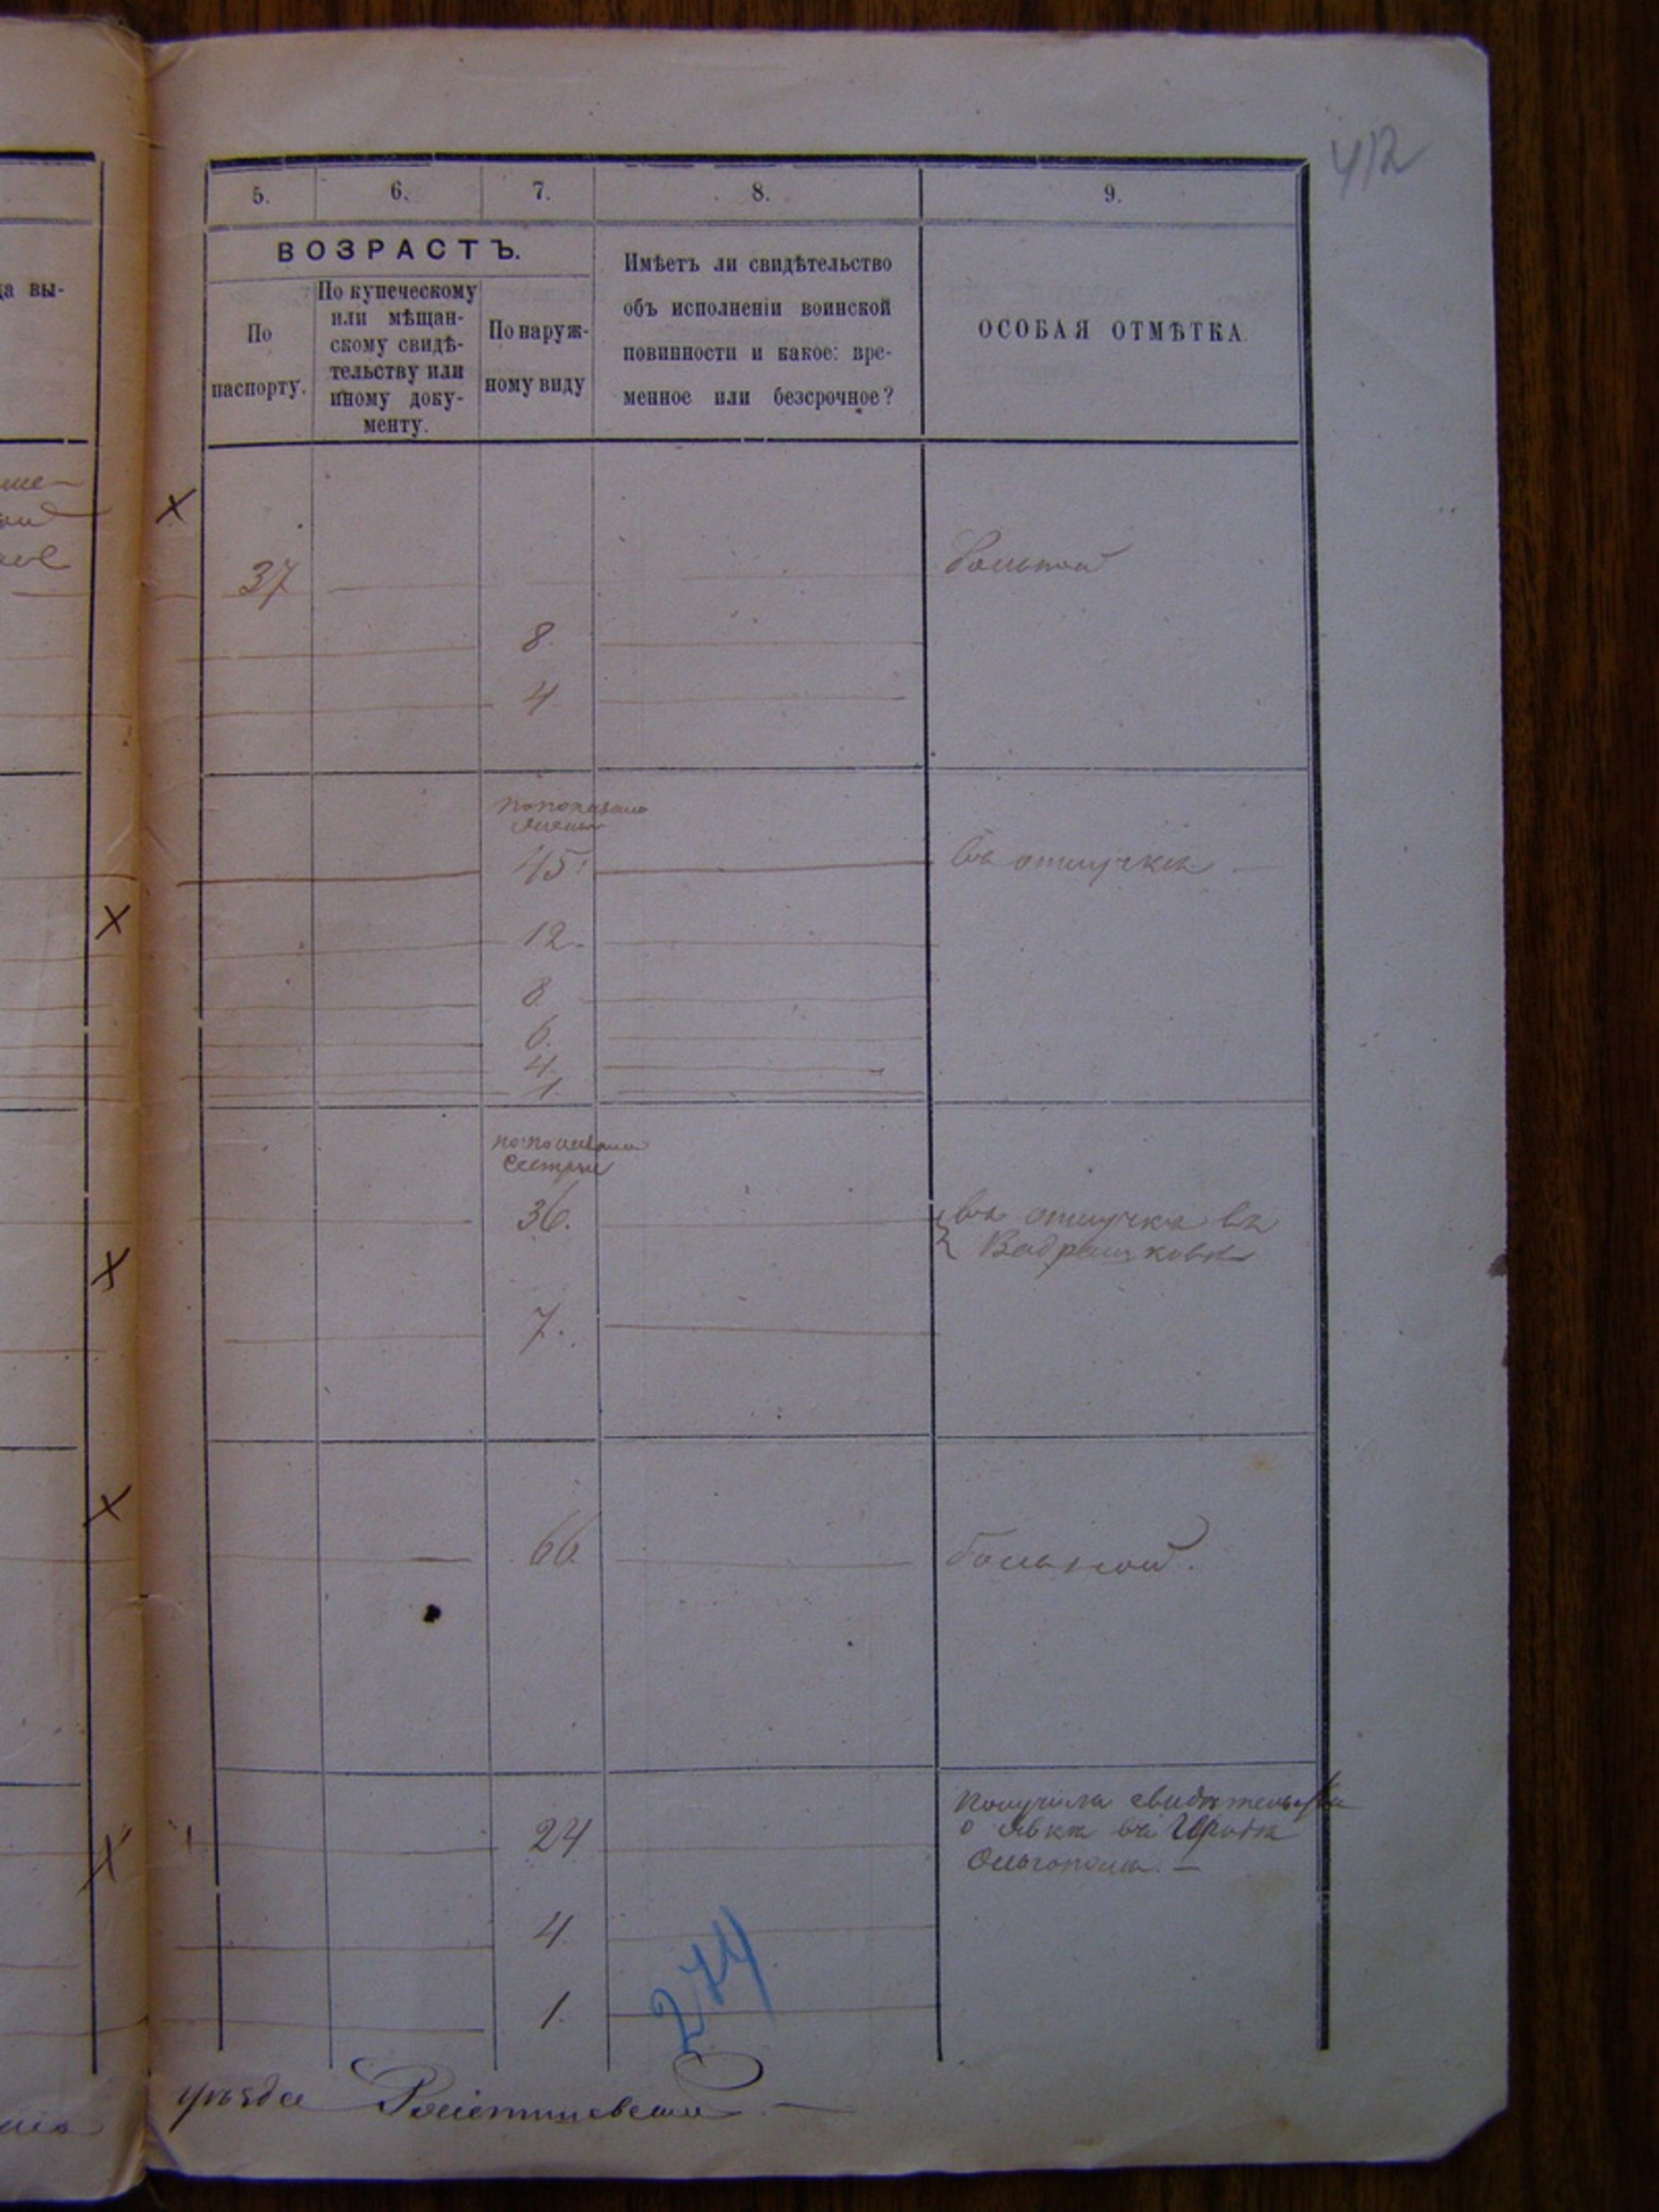 412
5. 6. 7. 8. 9.
ВОЗРАСТЪ.
По
паспорту.
По купеческому
или мѣщан-
скому свидѣ-
тельству или
иному доку-
менту.
По наруж-
ному виду
Имѣетъ ли свидѣтельство
объ исполненіи воинской
повинности и какое: вре-
менное или безсрочное?
ОСОБАЯ ОТМѢТКА.
да вы-
37 больной
8.
4.
по показанію
45. въ отлучкѣ
12.
8
6.
4.
1.
по показанію
сестры
36. въ отлучкѣ въ
7.
66. больной.
получила свидѣтельство
24 о явкѣ въ Городѣ
Ольгополѣ. —
4.
1.
274
уѣзда